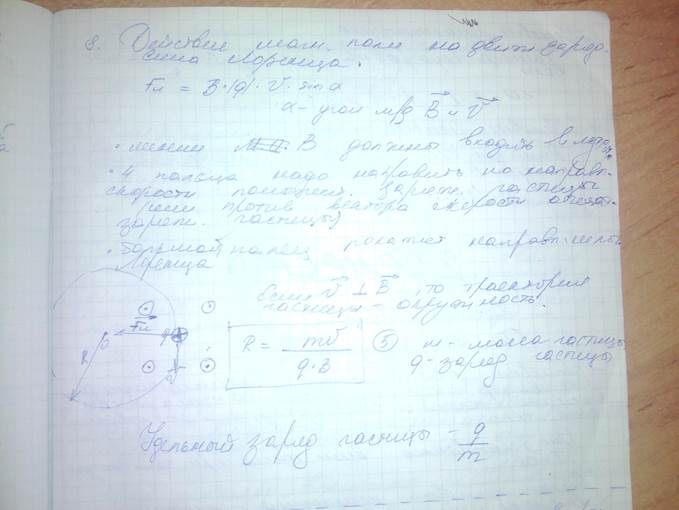 8. Действие магн. поля на движ. заряд.
сила Лоренца.
Fл = B·|q|·V·sin α
α - угол м/д B и V
• линии B должны входить в ладонь
• 4 пальца надо направить по направл.
скорости положит. заряж. частицы
против вектора скорости отрицат.
заряж. частицы)
• большой палец покажет направл. силы
Лоренца
Если V ⊥ B, то траектория
частицы - окружность.
Fл
R
q
R = mV / q·B
5
m - масса частицы
q - заряд частицы
Удельный заряд частицы - q/m